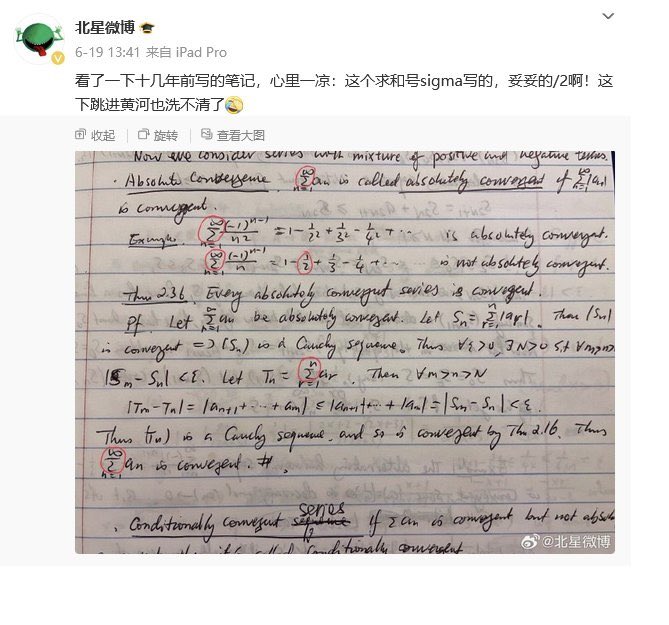 北星微博
6-19 13:41 来自 iPad Pro
看了一下十几年前写的笔记，心里一凉：这个求和号sigma写的，妥妥的/2啊！这
下跳进黄河也洗不清了🤣
收起 旋转 查看大图
Now we consider series with mixture of positive and negative terms.
· Absolute Convergence. ∞∑n=1 an is called absolutely convergent if ∞∑n=1 |an|
is convergent.
Example. ∞∑n=1 (-1)^(n-1)/n² = 1 - 1/2² + 1/3² - 1/4² + ... is absolutely convergent.
∞∑n=1 (-1)^(n-1)/n = 1 - 1/2 + 1/3 - 1/4 + ... is not absolutely convergent.
Thm 2.36. Every absolutely convergent series is convergent.
Pf. Let ∞∑n=1 an be absolutely convergent. Let Sn = n∑r=1 |ar|. Then (Sn)
is convergent => (Sn) is a Cauchy sequence. Thus ∀ε>0, ∃N>0 s.t ∀m>n>
|Sm - Sn| < ε. Let Tn = n∑r=1 ar. Then ∀m>n>N
|Tm - Tn| = |an+1 + ... + am| ≤ |an+1| + ... + |am| = |Sm - Sn| < ε.
Thus (Tn) is a Cauchy sequence, and so is convergent by Thm 2.16. Thus
∞∑n=1 an is convergent. #.
series
· Conditionally convergent sequence if ∑an is convergent but not absol
called conditionally convergent
@北星微博